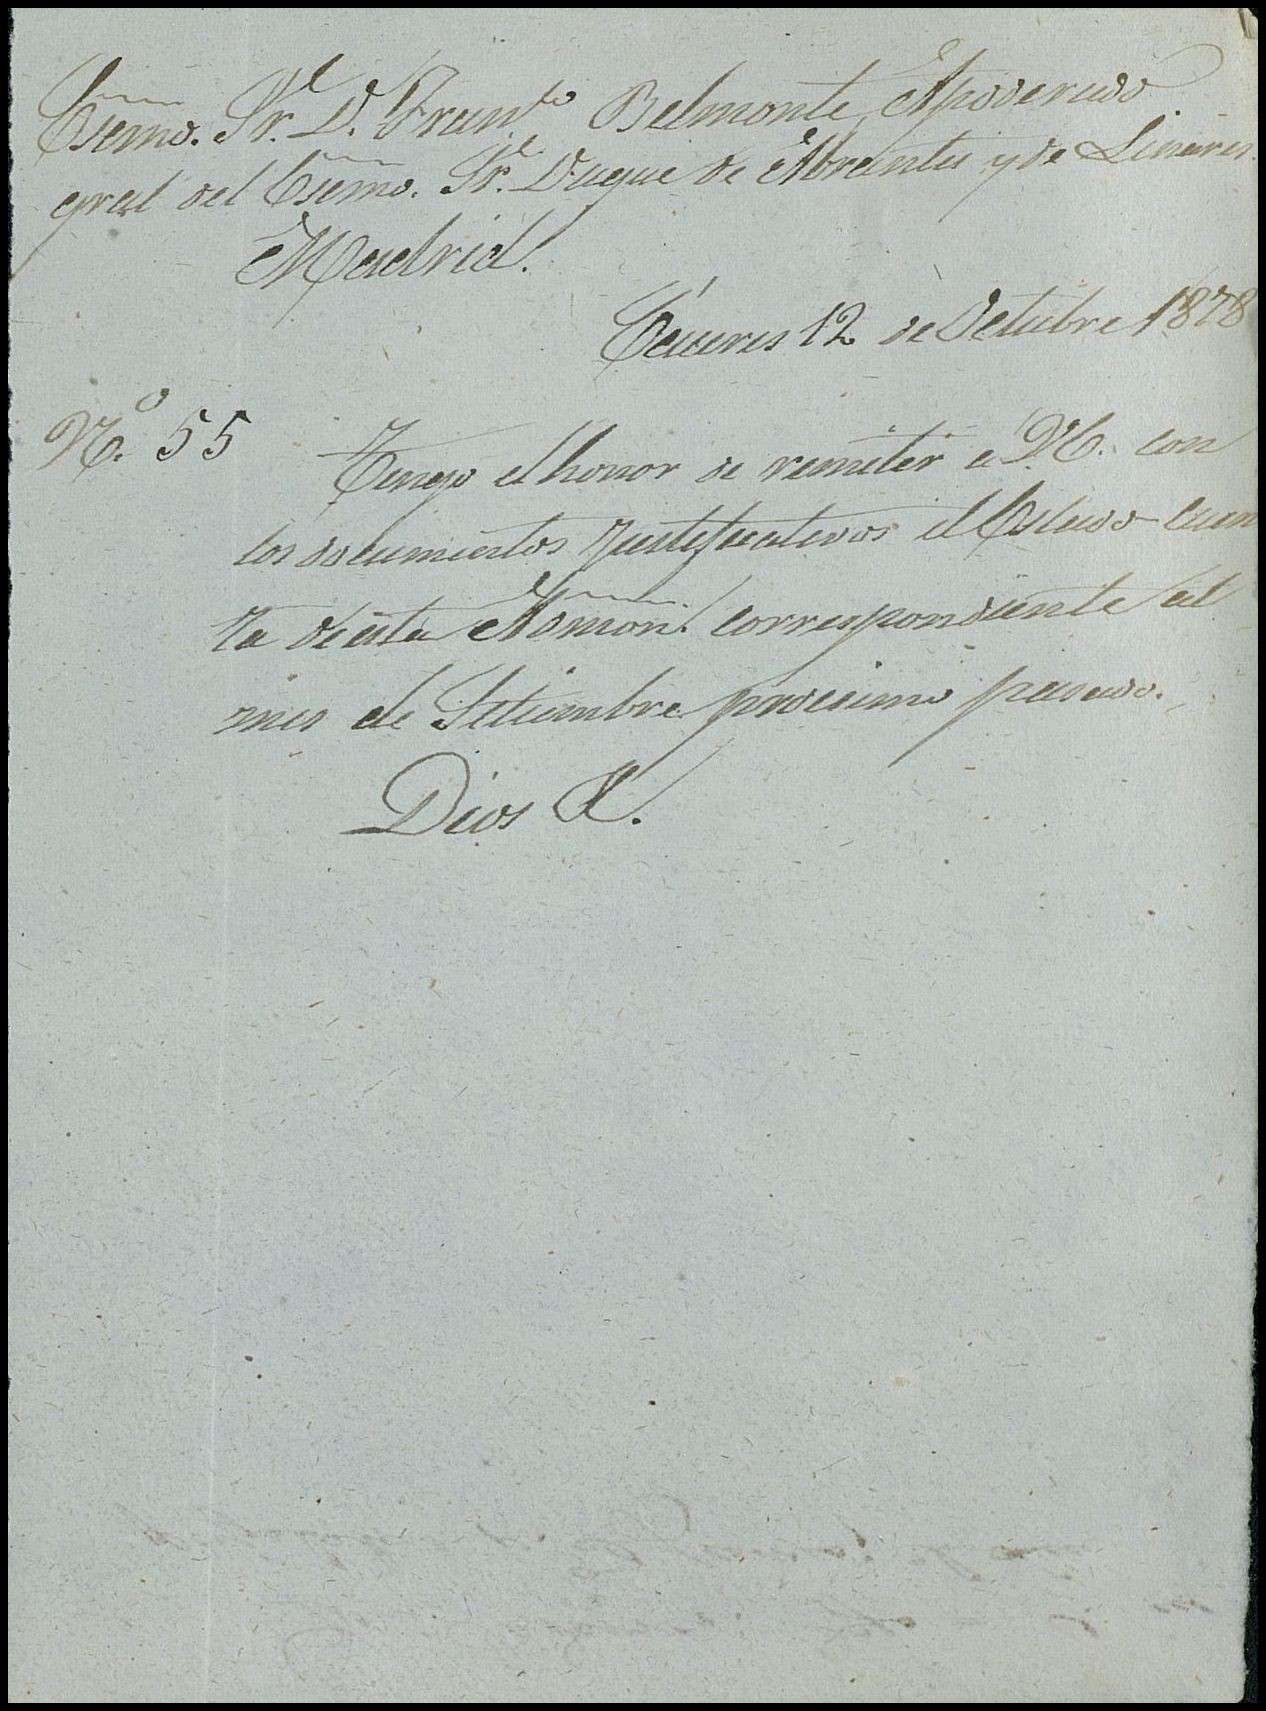 Esemo. Sr. D. Franco. Belmonte Apoderado
gral del Esemo. Sr. Duque de Abrantes y de Linares.
Madrid.
Cáceres 12 de Octubre 1878
No. 55 Tengo el honor de remitir a V.E. con
los documentos justificativos el Estado cuen
ta de esta Admon. correspondiente al
mes de Setiembre procsimo pasado.
Dios &.